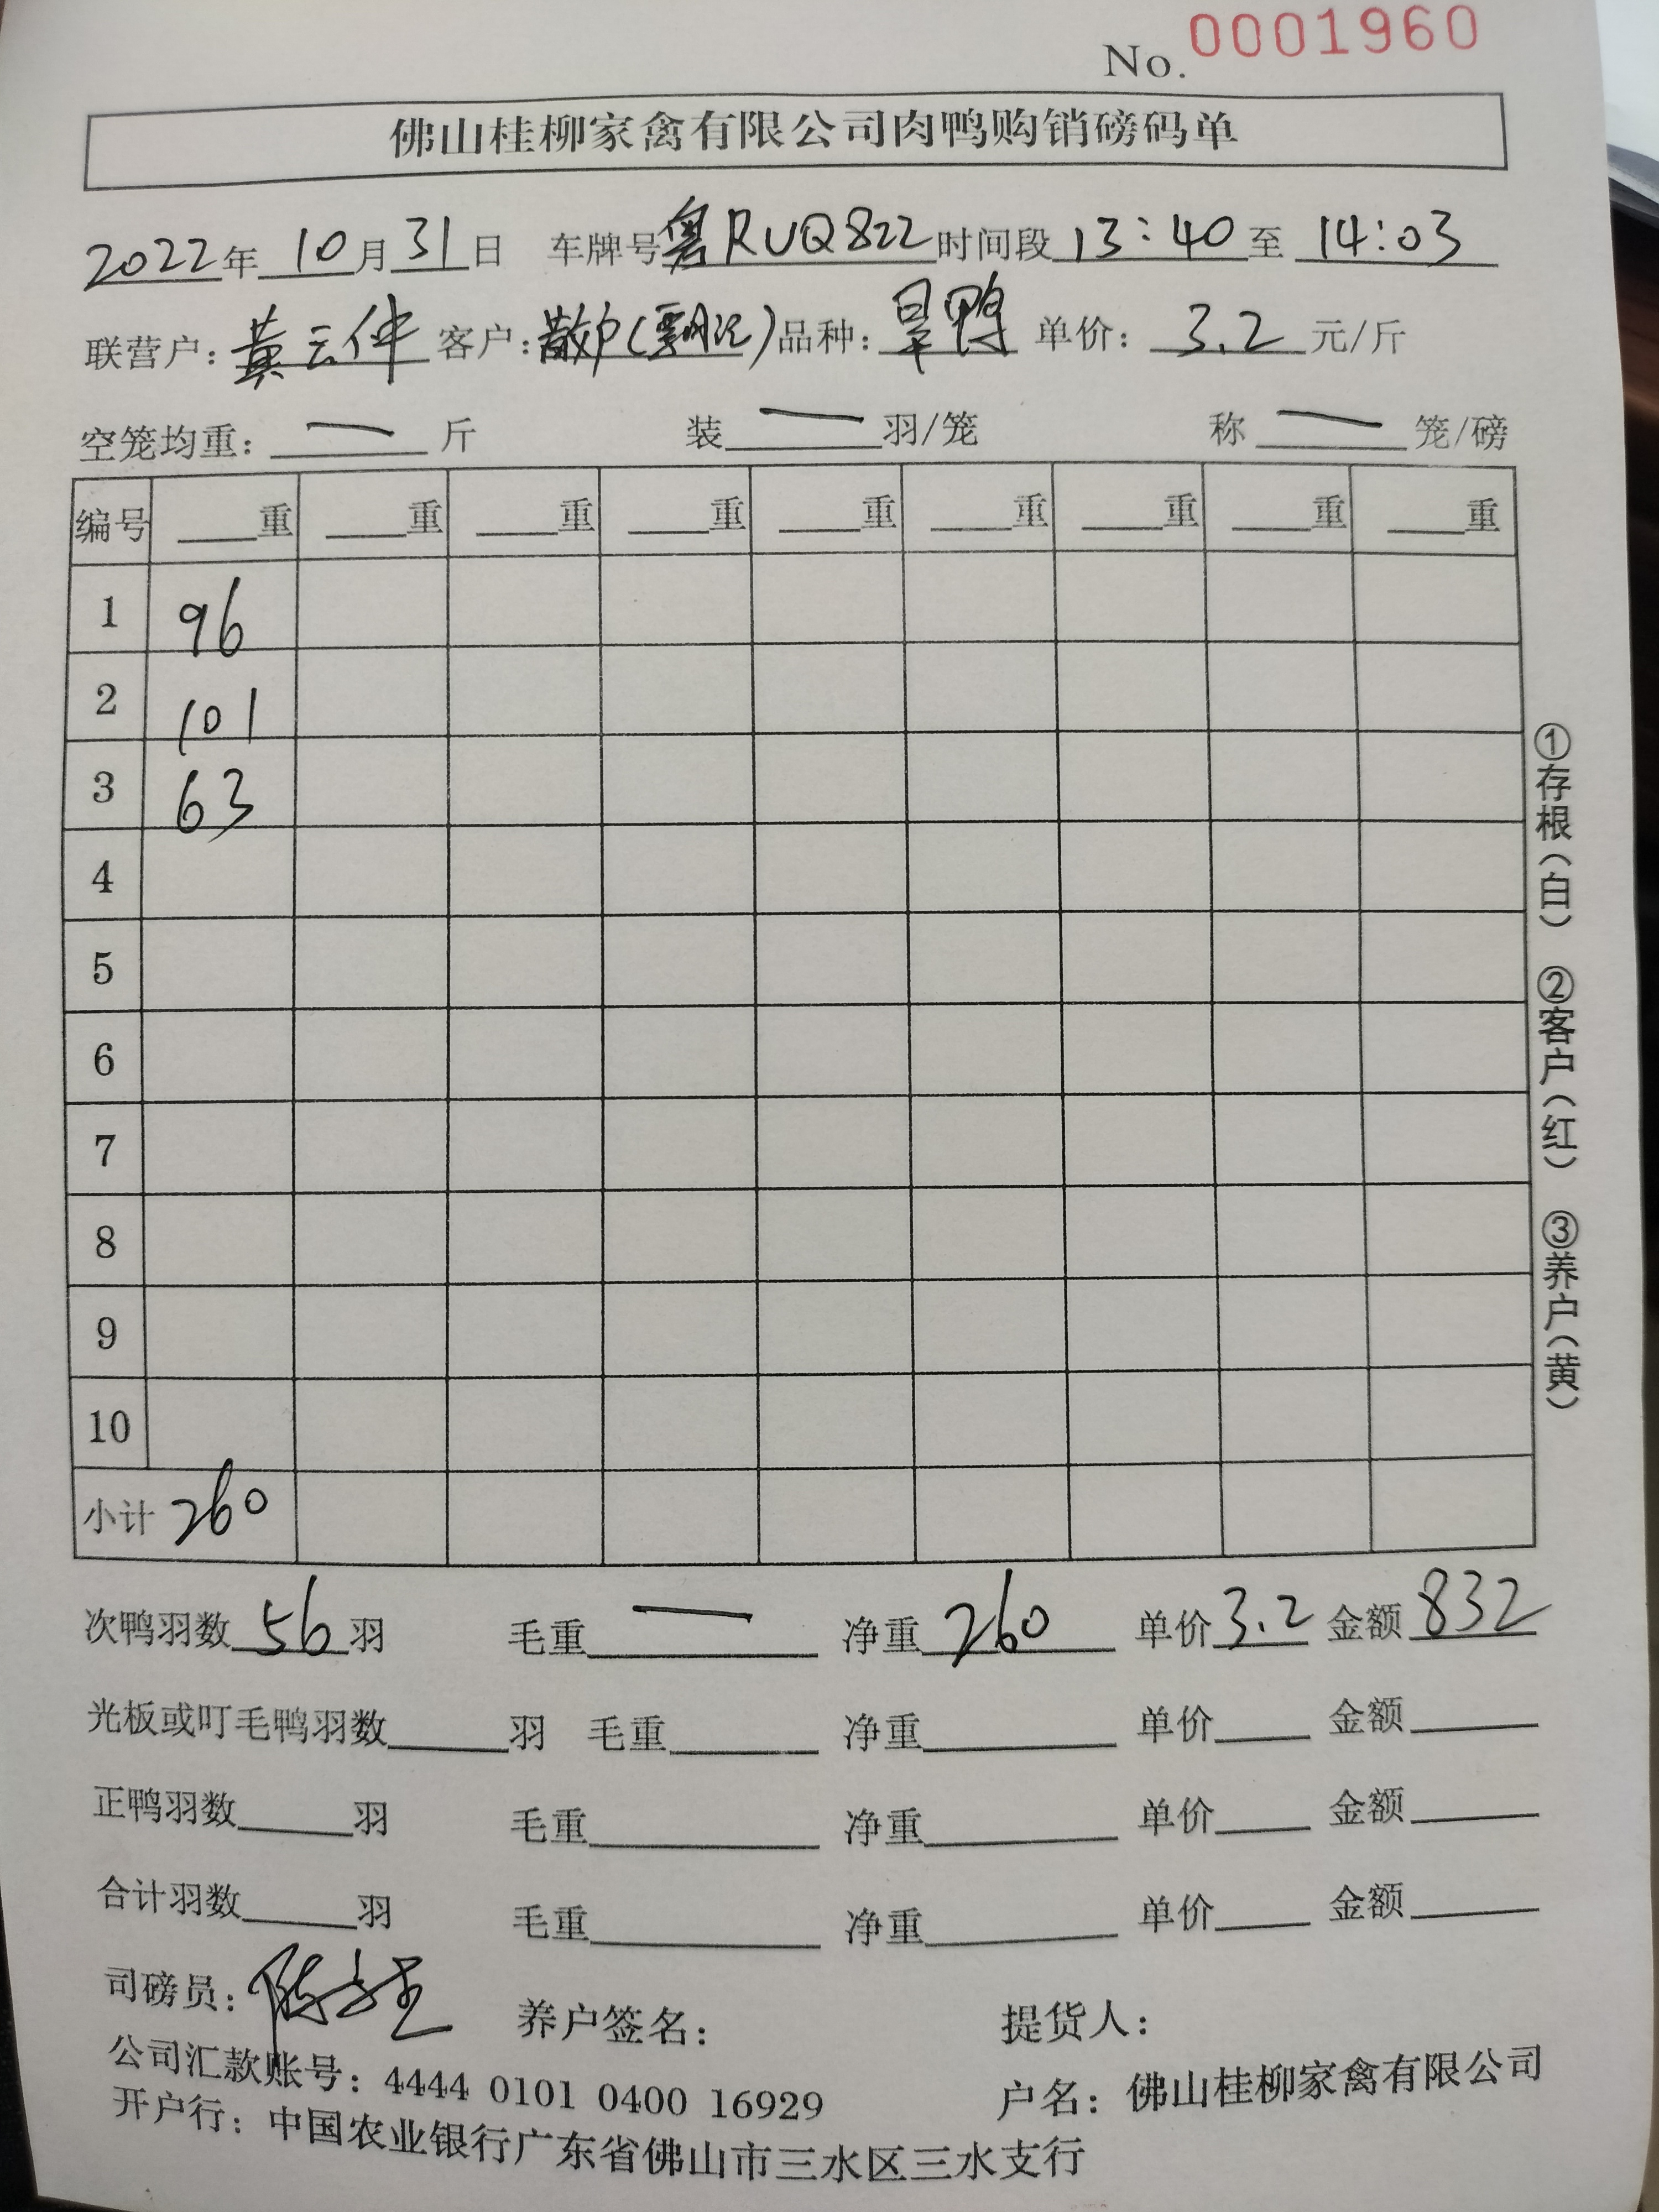 No. 0001960
佛山桂柳家禽有限公司肉鸭购销磅码单
2022年 10月 31日 车牌号 粤RUQ822 时间段 13:40 至 14:03
联营户: 黄云 客户: 散户( ) 品种: 旱鸭 单价: 3.2 元/斤
空笼均重: — 斤 装 — 羽/笼 称 — 笼/磅
编号 重 重 重 重 重 重 重 重 重
1 96
2 101
3 63
4
5
6
7
8
9
10
小计 260
①存根(白) ②客户(红) ③养户(黄)
次鸭羽数 56 羽 毛重 — 净重 260 单价 3.2 金额 832
光板或叮毛鸭羽数 羽 毛重 净重 单价 金额
正鸭羽数 羽 毛重 净重 单价 金额
合计羽数 羽 毛重 净重 单价 金额
司磅员: 养户签名: 提货人:
公司汇款账号: 4444 0101 0400 16929 户名: 佛山桂柳家禽有限公司
开户行: 中国农业银行广东省佛山市三水区三水支行